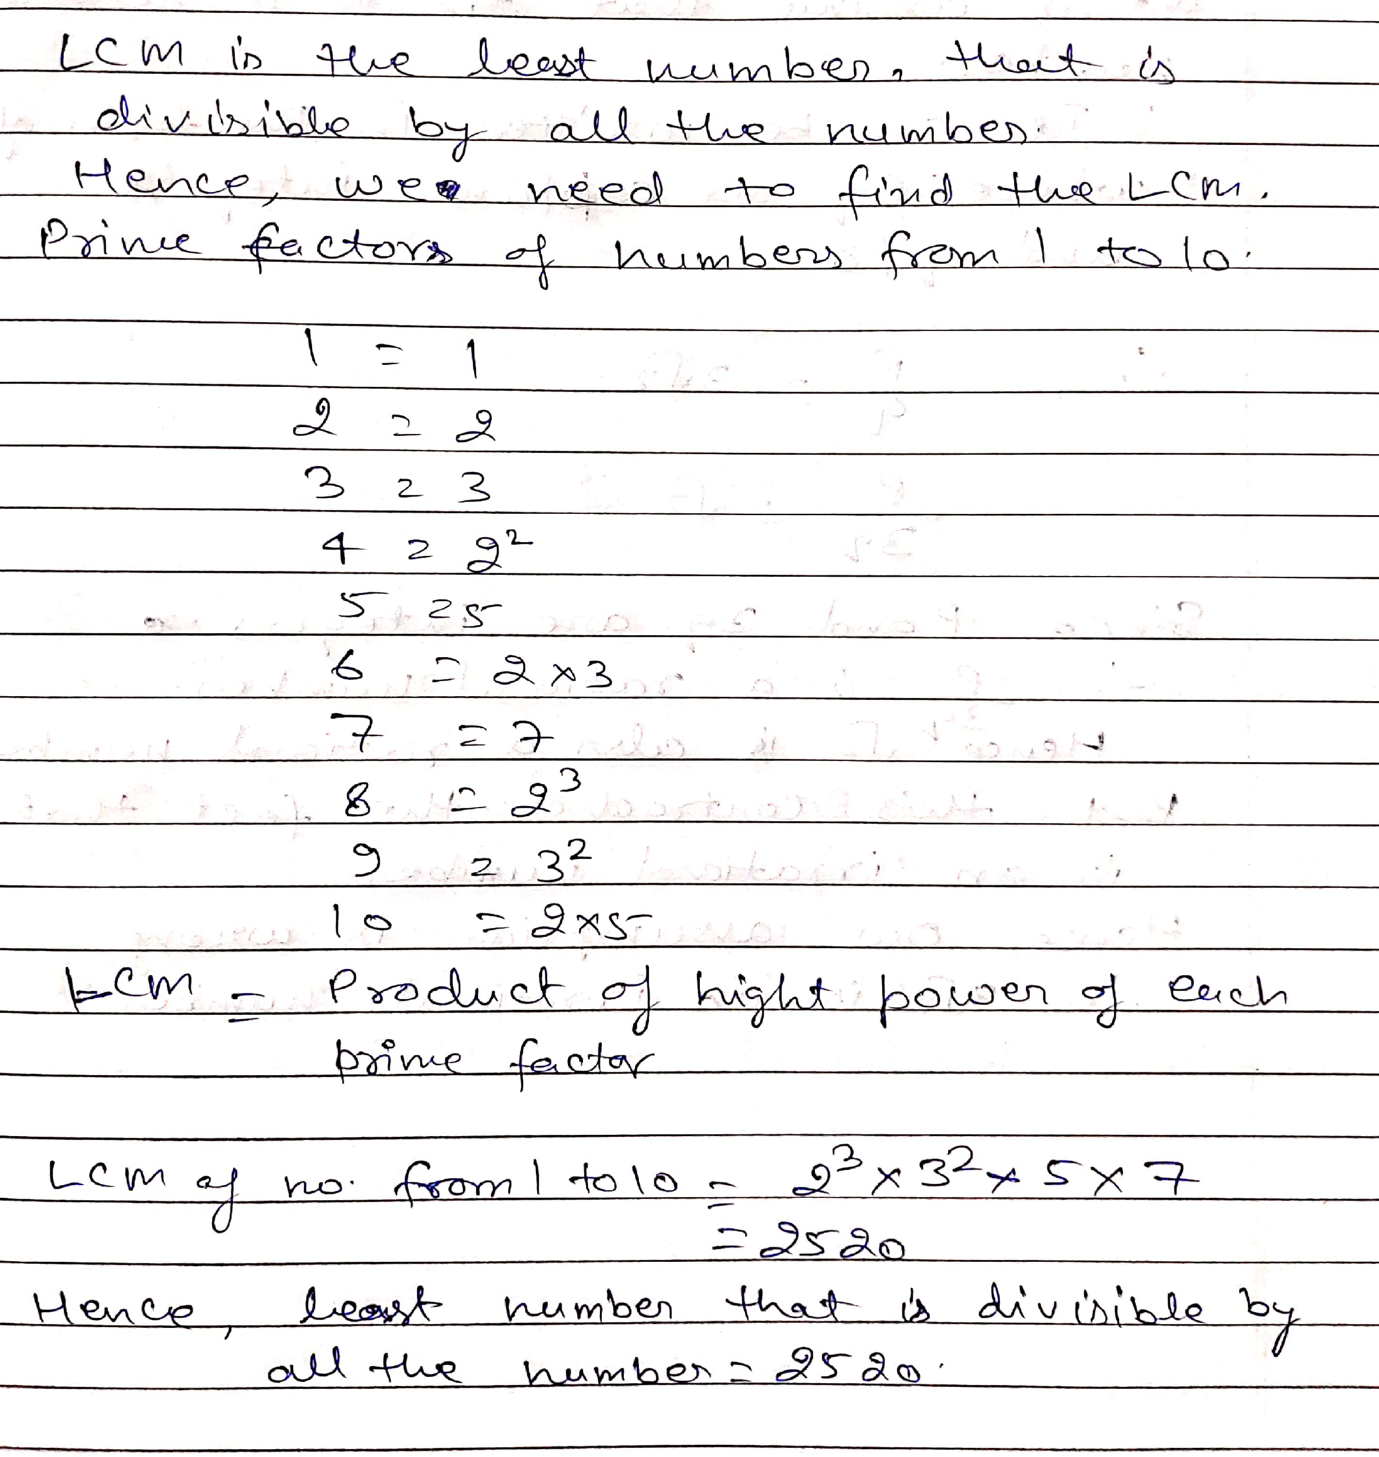 LCM is the least number, that is
divisible by all the number.
Hence, we need to find the LCM.
Prime factors of numbers from 1 to 10.
1 = 1
2 = 2
3 = 3
4 = 2²
5 = 5
6 = 2 × 3
7 = 7
8 = 2³
9 = 3²
10 = 2×5
LCM = Product of hight power of each
prime factor
LCM of no. from 1 to 10 = 2³ × 3² × 5 × 7
= 2520
Hence, least number that is divisible by
all the number = 2520.